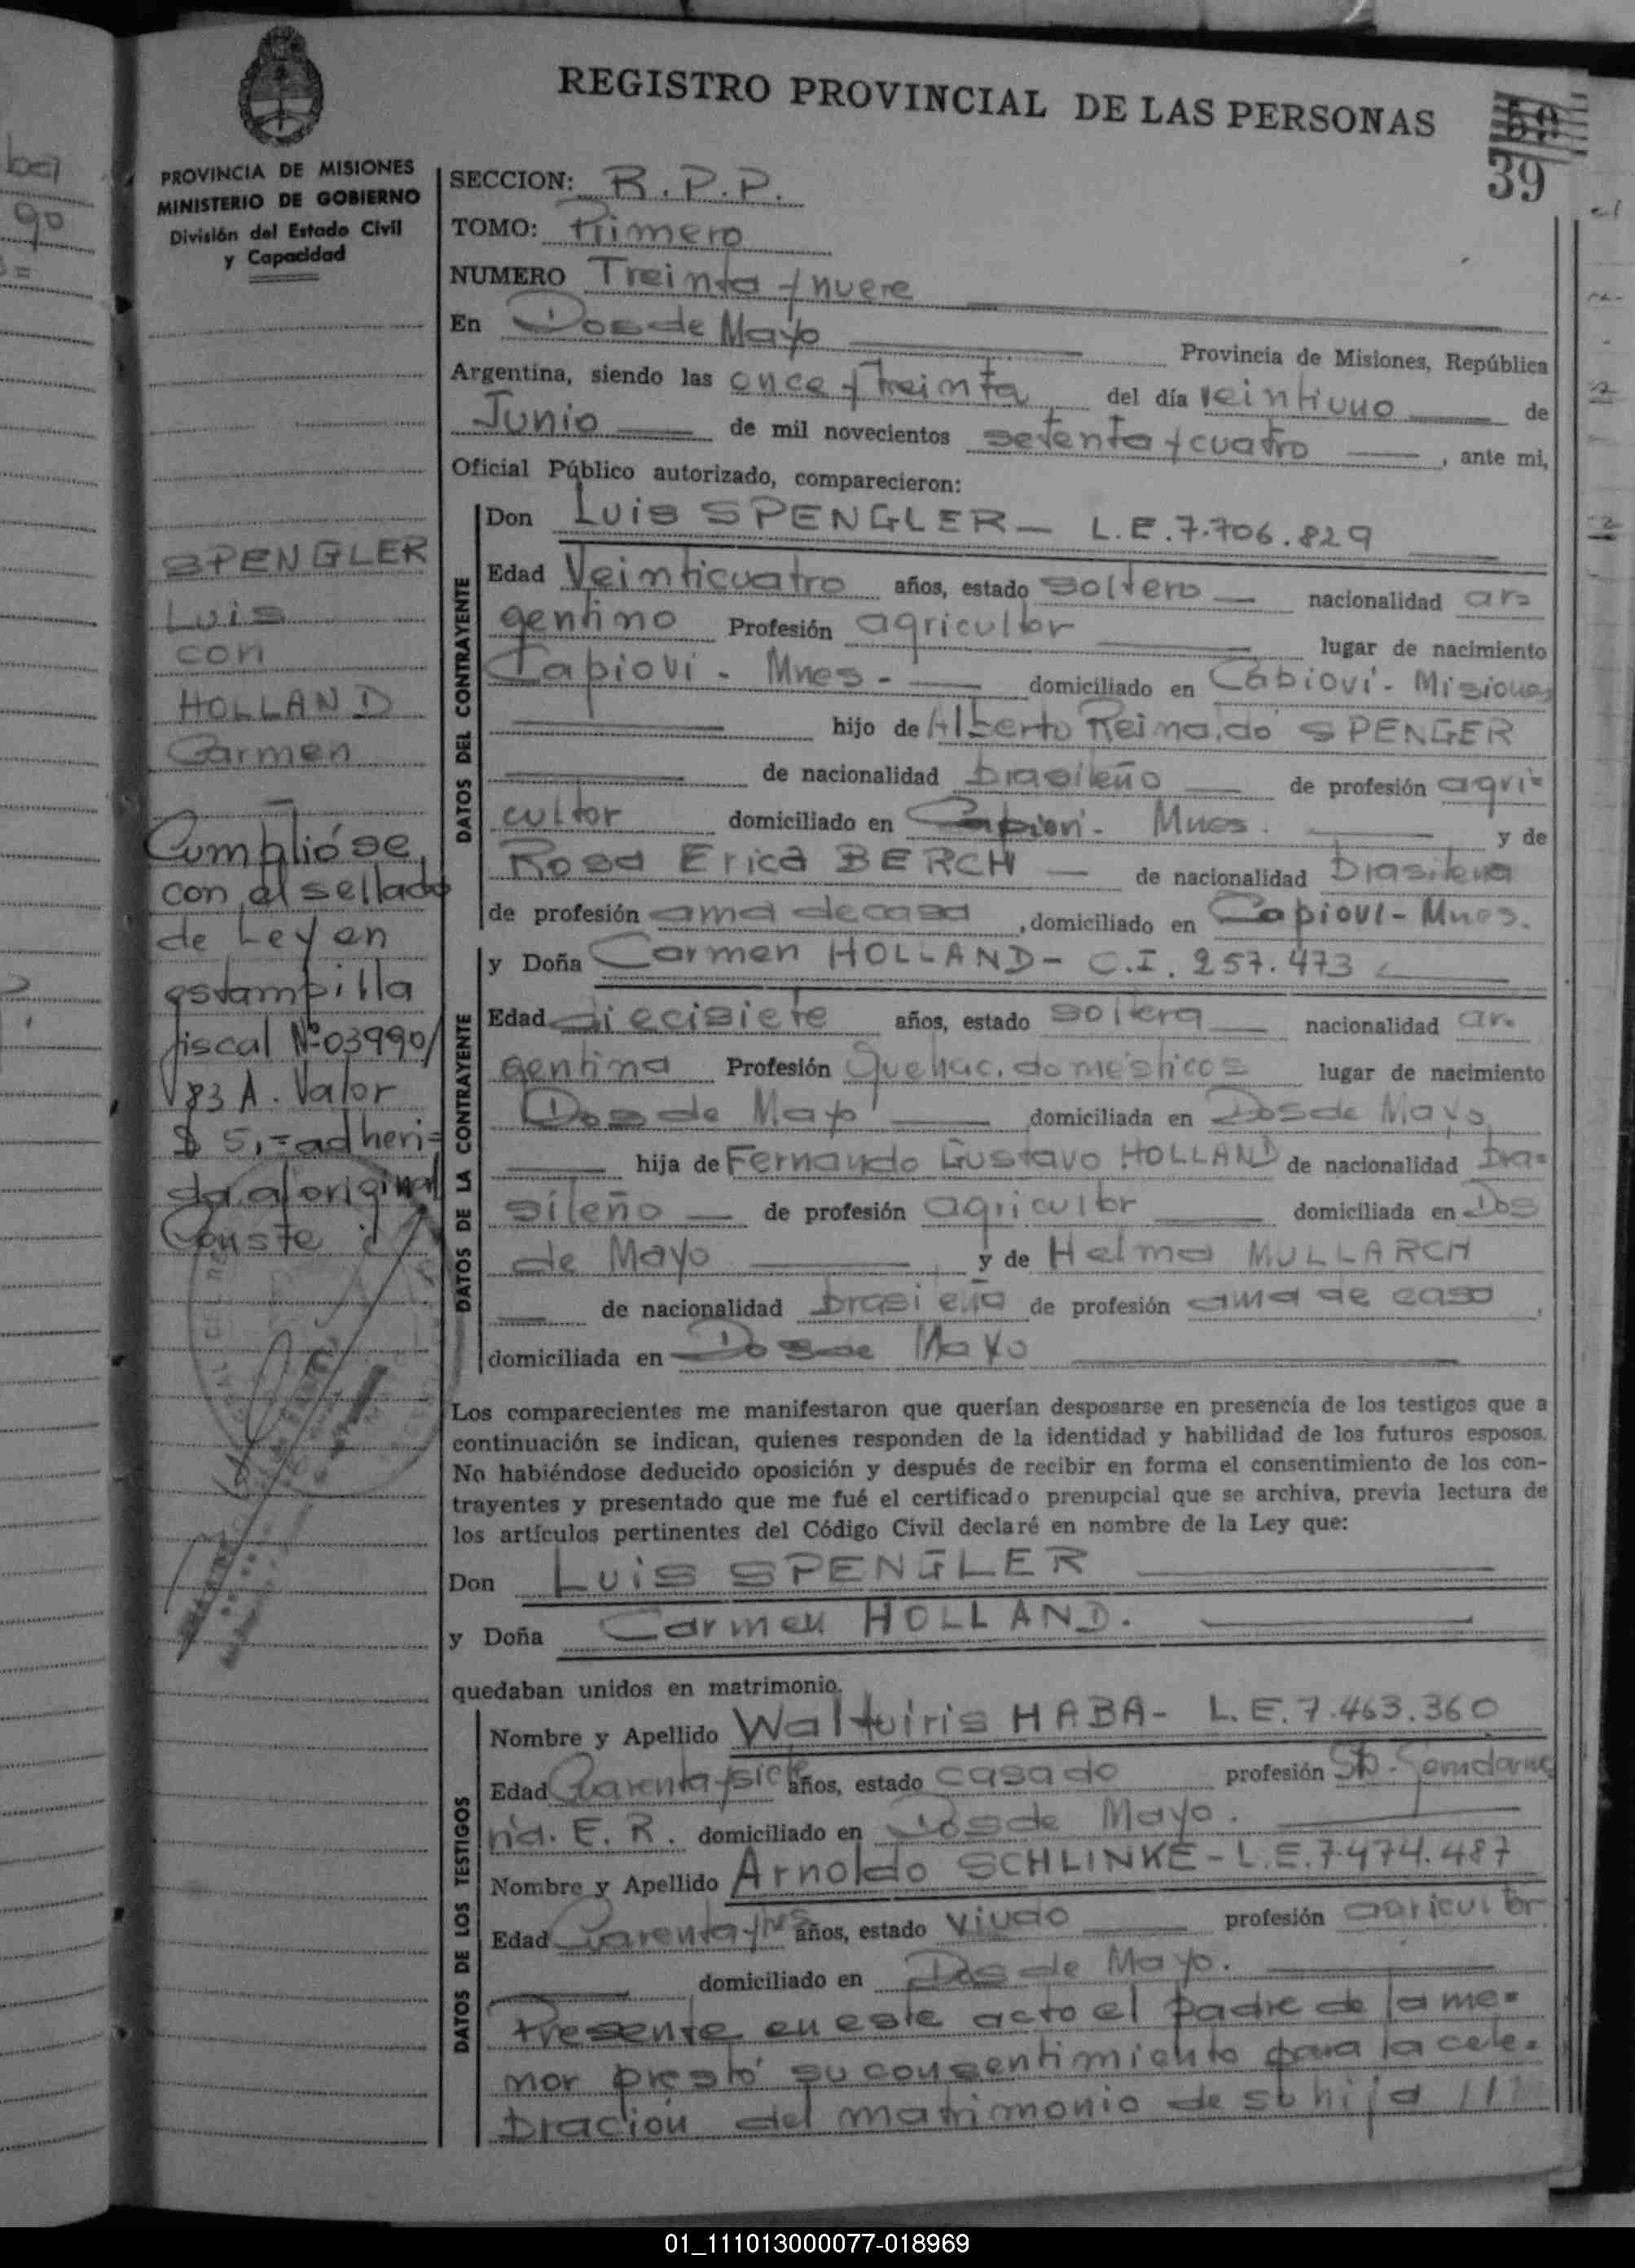 REGISTRO PROVINCIAL DE LAS PERSONAS
39
PROVINCIA DE MISIONES
MINISTERIO DE GOBIERNO
División del Estado Civil
y Capacidad
SECCION: R.P.P.
TOMO: Primero
NUMERO Treinta y nueve
En Dos de Mayo Provincia de Misiones, República
Argentina, siendo las once y treinta del día veintiuno de
Junio de mil novecientos setenta y cuatro, ante mi,
Oficial Público autorizado, comparecieron:
SPENGLER
Luis
con
HOLLAND
Carmen
Cumplióse
con el sellado
de Ley en
estampilla
fiscal Nº 03990/
83 A. Valor
$ 5,= adheri=
da al original
Conste
DATOS DEL CONTRAYENTE
Don Luis SPENGLER – L.E. 7.706.829
Edad Veinticuatro años, estado soltero nacionalidad ar=
gentino Profesión agricultor lugar de nacimiento
Capiovi - Mnes - domiciliado en Capioví - Misiones
hijo de Alberto Reinaldo SPENGER
de nacionalidad brasileño de profesión agri=
cultor domiciliado en Capiovi - Mnes. y de
Rosa Erica BERCH de nacionalidad brasilena
de profesión ama de casa, domiciliado en Capiovi - Mnes.
DATOS DE LA CONTRAYENTE
y Doña Carmen HOLLAND - C.I. 257.473
Edad diecisiete años, estado soltera nacionalidad ar-
gentina Profesión Quehac. domésticos lugar de nacimiento
Dos de Mayo domiciliada en Dos de Mayo
hija de Fernando Gustavo HOLLAND de nacionalidad bra=
sileño de profesión agricultor domiciliada en Dos
de Mayo y de Helma MULLARCH
de nacionalidad brasileña de profesión ama de casa,
domiciliada en Dos de Mayo
Los comparecientes me manifestaron que querían desposarse en presencia de los testigos que a
continuación se indican, quienes responden de la identidad y habilidad de los futuros esposos.
No habiéndose deducido oposición y después de recibir en forma el consentimiento de los con-
trayentes y presentado que me fué el certificado prenupcial que se archiva, previa lectura de
los artículos pertinentes del Código Civil declaré en nombre de la Ley que:
Don Luis SPENGLER
y Doña Carmen HOLLAND.
quedaban unidos en matrimonio.
DATOS DE LOS TESTIGOS
Nombre y Apellido Waltuiris HABA - L.E. 7.463.360
Edad Cuarenta y siete años, estado casado profesión Gendarme
ría. E. R. domiciliado en Dos de Mayo.
Nombre y Apellido Arnoldo SCHLINKE - L.E. 7.474.487
Edad Cuarenta y años, estado viudo profesión agricultor
domiciliado en Dos de Mayo.
Presente en este acto el padre de la me=
nor prestó su consentimiento para la cele=
bración del matrimonio de su hija ///
01_111013000077-018969